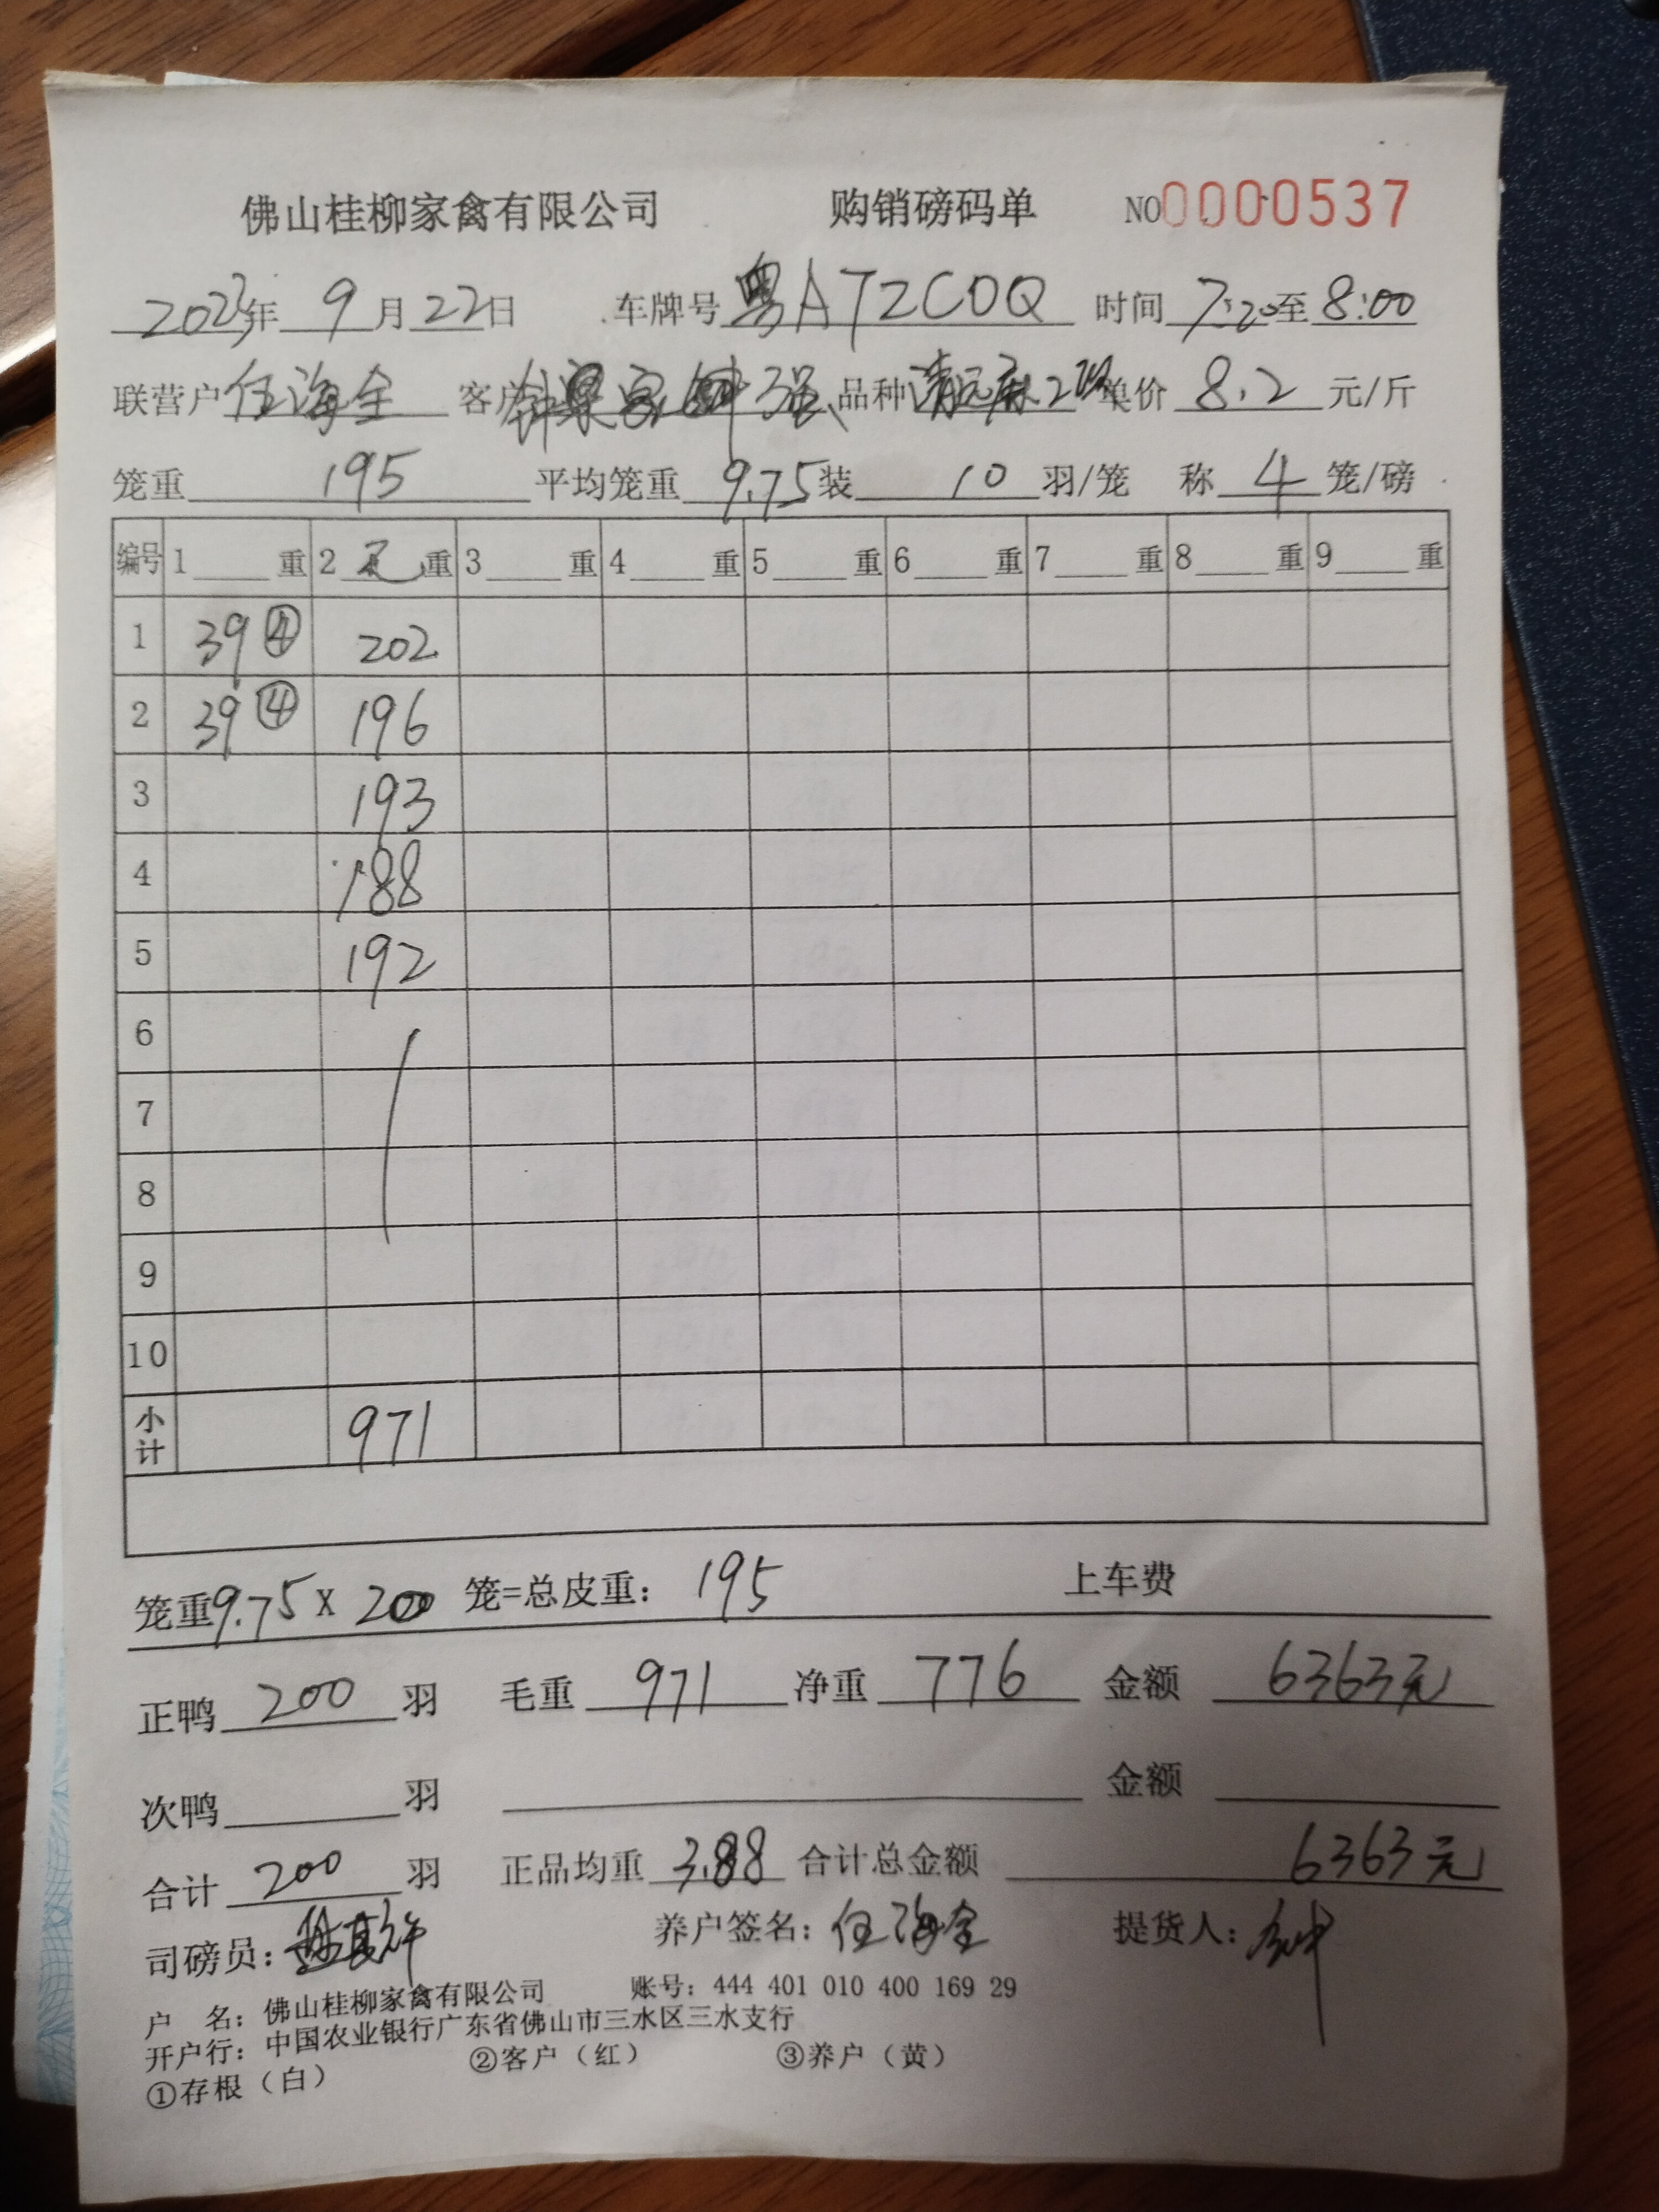 佛山桂柳家禽有限公司 购销磅码单 NO0000537
2023年 9月22日 车牌号 粤AT2C0Q 时间 7:20至8:00
联营户 任海全 客户 强 品种 清远麻2 单价 8.2 元/斤
笼重 195 平均笼重 9.75 装 10 羽/笼 称 4 笼/磅
编号 1 重 2 毛重 3 重 4 重 5 重 6 重 7 重 8 重 9 重
1 39④ 202
2 39④ 196
3 193
4 188
5 192
6
7
8
9
10
小计 971
笼重9.75 X 200 笼=总皮重: 195 上车费
正鸭 200 羽 毛重 971 净重 776 金额 6363元
次鸭 羽 金额
合计 200 羽 正品均重 3.88 合计总金额 6363元
司磅员: 养户签名: 任海全 提货人: 钟
户 名: 佛山桂柳家禽有限公司 账号: 444 401 010 400 169 29
开户行: 中国农业银行广东省佛山市三水区三水支行
①存根（白） ②客户（红） ③养户（黄）